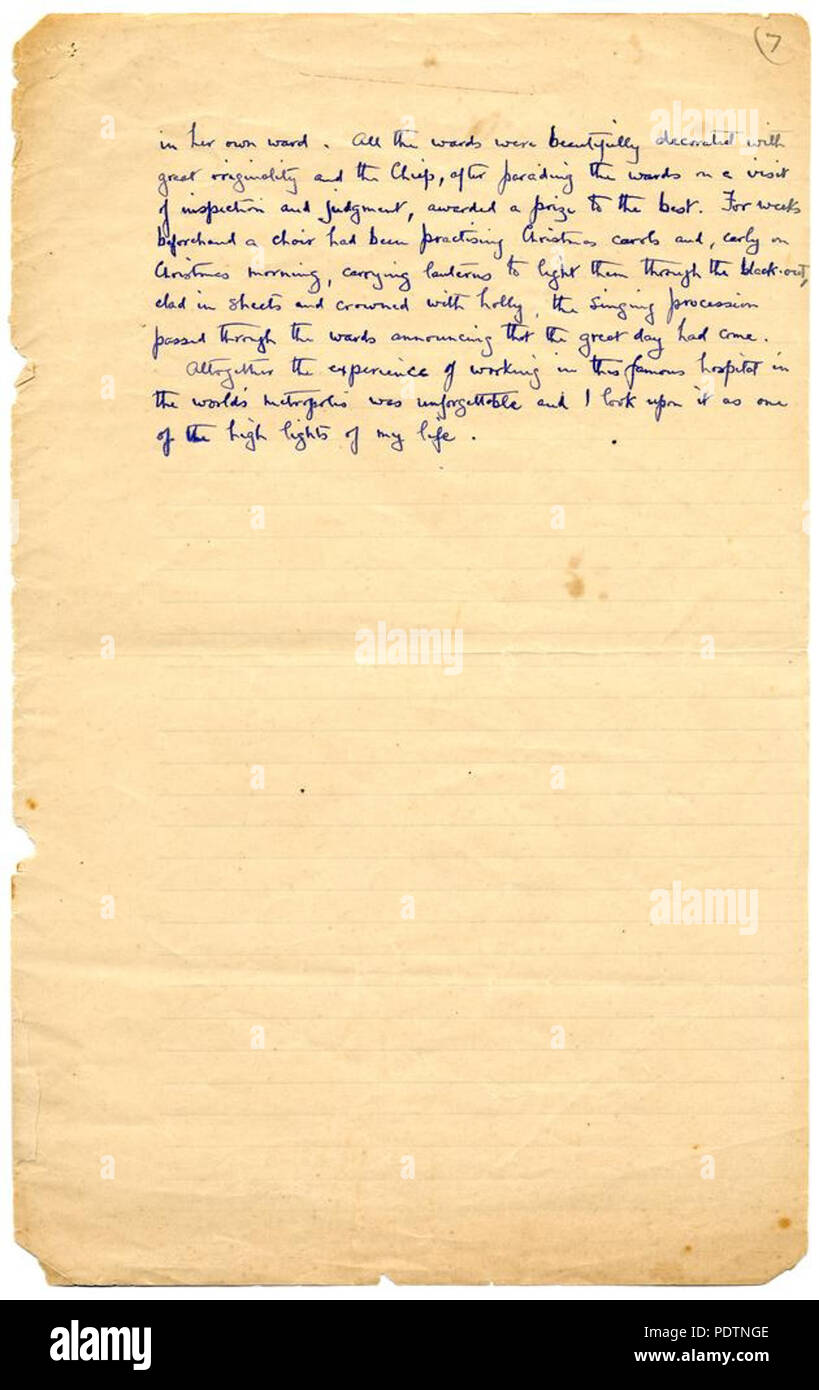 7
in her own ward. All the wards were beautifully decorated with
great originality and the Chiefs, after parading the wards on a visit
of inspection and judgment, awarded a prize to the best. For weeks
beforehand a choir had been practising Christmas carols and, early on
Christmas morning, carrying lanterns to light them through the black-out,
clad in sheets and crowned with holly, the singing procession
passed through the wards announcing that the great day had come.
Altogether the experience of working in this famous hospital in
the world's metropolis was unforgettable and I look upon it as one
of the high lights of my life.
alamy
alamy
alamy
alamy
Image ID: PDTNGE
www.alamy.com